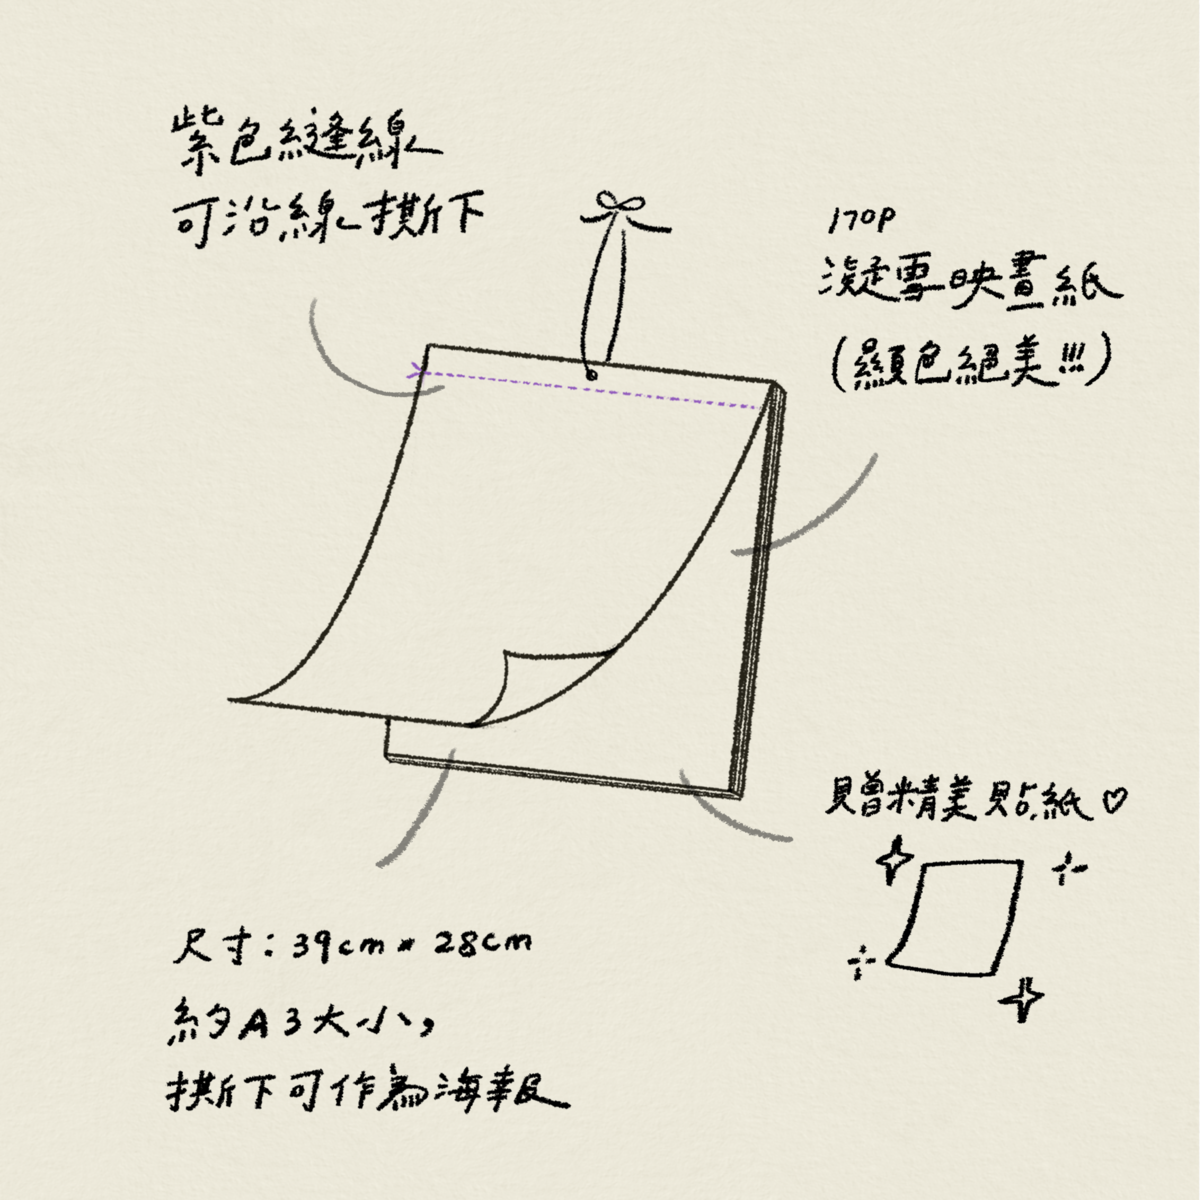 紫色縫線
可沿線撕下
170P
凝雪映畫紙
(顯色絕美!!!)
贈精美貼紙♡
尺寸：39cm × 28cm
約A3大小，
撕下可作為海報